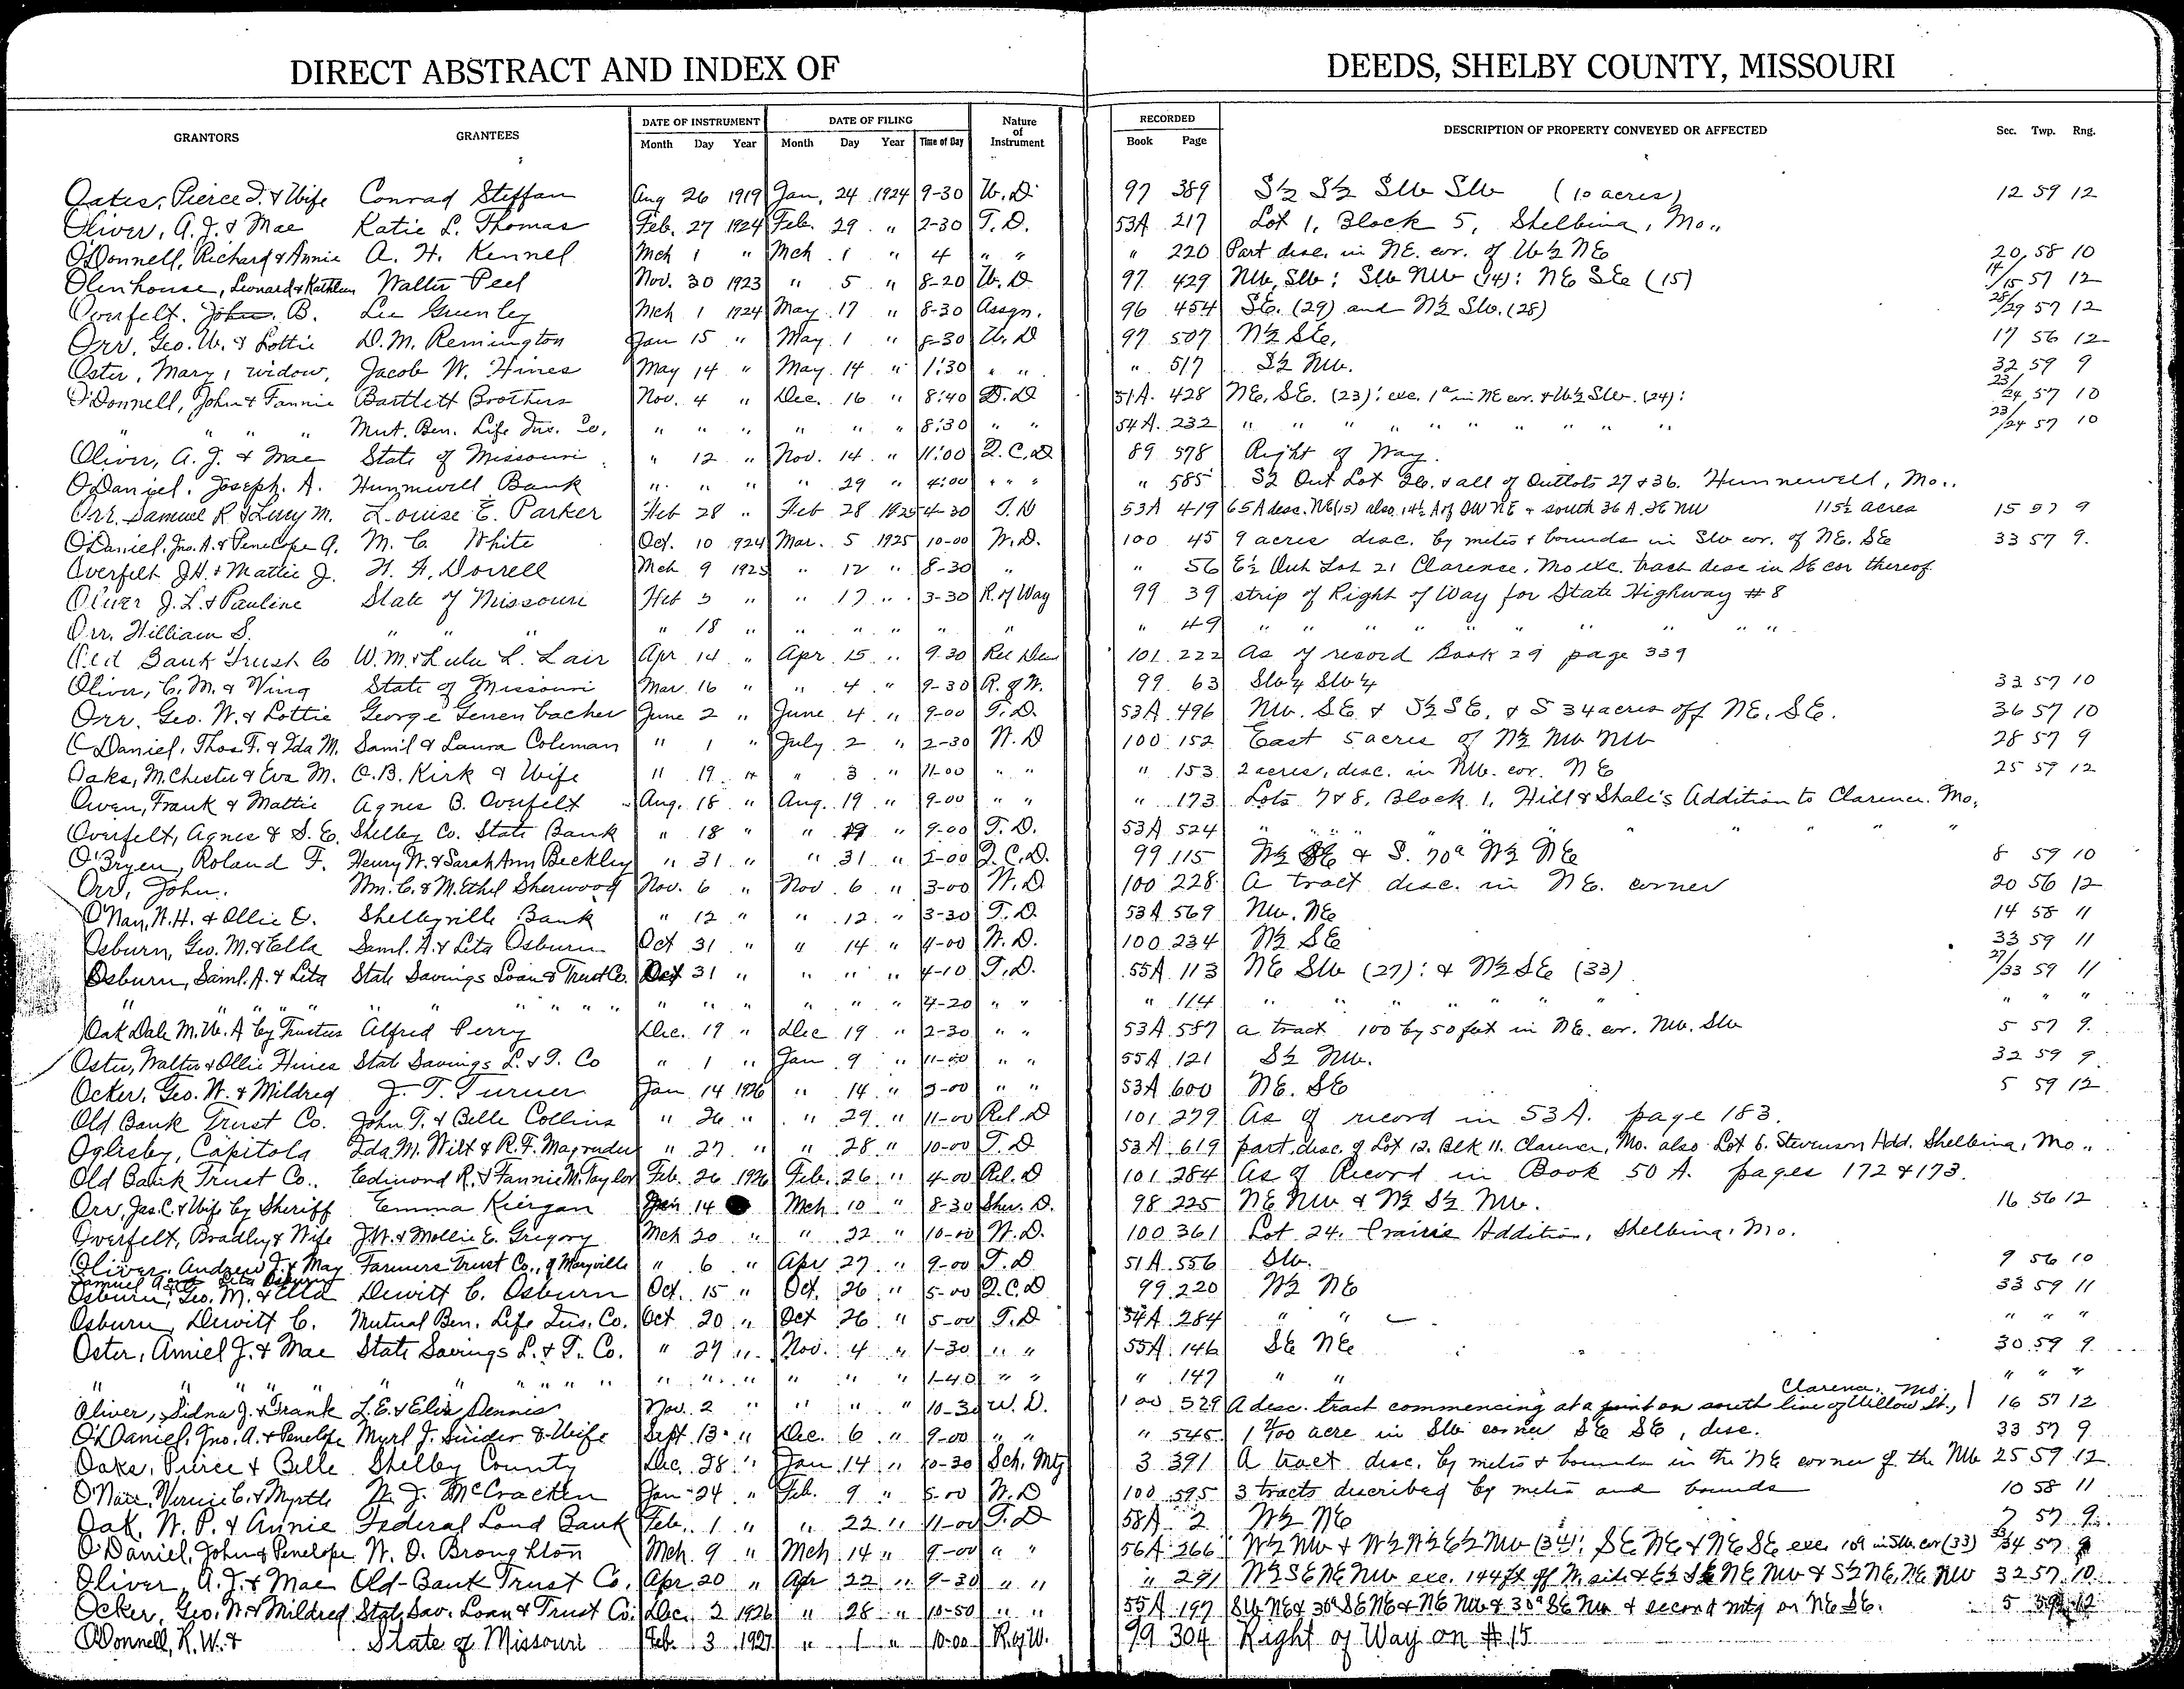 DIRECT ABSTRACT AND INDEX OF DEEDS, SHELBY COUNTY, MISSOURI
GRANTORS GRANTEES DATE OF INSTRUMENT DATE OF FILING Nature of Instrument RECORDED DESCRIPTION OF PROPERTY CONVEYED OR AFFECTED Sec. Twp. Rng.
Month Day Year Month Day Year Time of Day Book Page
Oates, Pierce D. & Wife Conrad Steffan Aug 26 1919 Jan. 24 1924 9-30 W.D. 97 389 S½ S½ SW SW (10 acres) 12 59 12
Oliver, A.J. & Mae Katie L. Thomas Feb. 27 1924 Feb. 29 " 2-30 T.D. 53A 217 Lot 1, Block 5, Shelbina, Mo.,
O'Donnell, Richard & Annie A. H. Kennel Mch 1 " Mch 1 " 4 " " " 220 Part desc. in NE. cor. of W½ NE 20 58 10
Olenhouse, Leonard & Kathleen Walter Peel Nov. 30 1923 " 5 " 8-20 W.D 97 429 NW, SW; SW NW (14): NE SE (15) 14/15 57 12
Overfelt, John B. Lee Greenley Mch 1 1924 May 17 " 8-30 Assgn. 96 454 SE. (29) and N½ SW. (28) 28/29 57 12
Orr, Geo. W. & Lottie D.M. Remington Jan 15 " May 1 " 8-30 W.D 97 507 N½ SE. 17 56 12
Oster, Mary, widow, Jacob W. Hines May 14 " May 14 " 1:30 " " " 517 S½ NW. 32 59 9
O'Donnell, John & Fannie Bartlett Brothers Nov. 4 " Dec. 16 " 8:40 D.D 51A. 428 NE, SE. (23); exc. 1a in NE cor. & W½ SW. (24): 23/24 57 10
" " " " Mut. Ben. Life Ins. Co. " " " " " " 8:30 " " 54A. 232 " " " " " " " " " " 23/24 57 10
Oliver, A. J. & Mae State of Missouri " 12 " Nov. 14 " 11:00 Q.C.D 89 578 Right of Way.
O'Daniel, Joseph. A. Hunnewell Bank " " " " 29 " 4:00 " " " " 585 S½ Out Lot 26, & all of Outlots 27 & 36. Hunnewell, Mo.,
Orr, Samuel R & Lucy M. Louise E. Parker Feb 28 " Feb 28 1925 4-30 T.D 53A 419 65A desc. NE(15) also 14½ A of SW NE & south 36 A. SE NW 115½ acres 15 57 9
O'Daniel, Jno. A. & Penelope A. M. C. White Oct. 10 924 Mar. 5 1925 10-00 W.D. 100 45 9 acres desc. by metes & bounds in SW cor. of NE. SE 33 57 9.
Overfelt J.H. & Mattie J. H. F. Dorrell Mch 9 1925 " 12 " 8-30 " " 56 E½ Out Lot 21 Clarence, Mo exc. tract desc in SE cor thereof
Oliver J. L. & Pauline State of Missouri Feb 5 " " 17 " 3-30 R. of Way 99 39 strip of Right of Way for State Highway #8
Orr, William S. " " " " 18 " " " " " " " 49 " " " " " " " " "
Old Bank Trust Co W.M. & Lulu L. Lair Apr 14 " Apr 15 " 9.30 Rel Deed 101 222 As of record Book 29 page 339
Oliver, C. M. & Wing State of Missouri Mar. 16 " " 4 " 9-30 R. of W. 99 63 SW¼ SW¼ 33 57 10
Orr, Geo. W. & Lottie George Gerrenbacher June 2 " June 4 " 9-00 T.D. 53A 496 NW. SE & S½ SE, & S 34 acres off NE. SE. 36 57 10
O'Daniel, Thos F. & Ida M. Saml & Laura Coleman " 1 " July 2 " 2-30 W.D 100 152 East 5 acres of N½ NW NW 28 57 9
Oaks, M. Chester & Eva M. O.B. Kirk & Wife " 19 " " 3 " 11-00 " " " 153 2 acres, desc. in NW. cor. NE 25 59 12
Owen, Frank & Mattie Agnes B. Overfelt Aug. 18 " Aug. 19 " 9-00 " " " 173 Lots 7 & 8, Block 1, Hill & Shale's Addition to Clarence. Mo.
Overfelt, Agnes & S. E. Shelby Co. State Bank " 18 " " 19 " 9-00 T.D. 53A 524 " " " " " " " " "
O'Bryen, Roland F. Henry W. & Sarah Ann Beckley " 31 " " 31 " 2-00 Q.C.D. 99 115 W½ SE & S. 70a W½ NE 8 59 10
Orr, John. Wm. C. & M. Ethel Sherwood Nov. 6 " Nov 6 " 3-00 W.D 100 228 A tract desc. in NE. corner 20 56 12
O'Nan, W.H. & Ollie E. Shelbyville Bank " 12 " " 12 " 3-30 T.D. 53A 569 NW. NE 14 58 11
Osburn, Geo. M. & Ella Saml. A. & Lita Osburn Oct 31 " " 14 " 4-00 W.D. 100 234 N½ SE 33 59 11
Osburn, Saml. A. & Lita State Savings Loan & Trust Co. Oct 31 " " " " 4-10 T.D. 55A 113 NE SW (27): & N½ SE (33) 27/33 59 11
" " " " " " " " " " " " " " 4-20 " " " 114 " " " " " " " " " "
Oak Dale M.W.A by Trustees Alfred Perry Dec. 19 " Dec 19 " 2-30 " " 53A 587 a tract 100 by 50 feet in NE. cor. NW. SW 5 57 9.
Oster, Walter & Ollie Hines State Savings L. & T. Co " 1 " Jan 9 " 11-00 " " 55A 121 S½ NW. 32 59 9
Ocker, Geo. W. & Mildred J. T. Turner Jan 14 1926 " 14 " 2-00 " " 53A 600 NE. SE 5 59 12
Old Bank Trust Co. John T. & Belle Collins " 26 " " 29 " 11-00 Rel. D 101 279 As of record in 53A. page 183.
Oglisby, Capitola Ida M. Wilt & R. F. Magruder " 27 " " 28 " 10-00 T.D 53A 619 part. desc. of Lot 12, Blk 11. Clarence, Mo. also Lot 6. Stevenson Add. Shelbina, Mo.,
Old Bank Trust Co. Edmond R. & Fannie M. Taylor Feb. 26 1926 Feb. 26 " 4-00 Rel. D 101 284 As of Record in Book 50 A. pages 172 & 173.
Orr, Jas. C. & Wife by Sheriff Emma Kirgan Jan 14 Mch 10 " 8-30 Sher. D. 98 225 NE NW & N½ S½ NW. 16 56 12
Overfelt, Bradley & Wife J.W. & Mollie E. Gregory Mch 20 " " 22 " 10-00 W.D. 100 361 Lot 24. Prairie Addition, Shelbina, Mo.
Oliver, Andrew J. & May Farmers Trust Co., of Maryville " 6 " Apr 27 " 9-00 T.D 51A 556 SW. 9 56 10
Samuel A. & Lita Osburn
Osburn, Geo. M. & Ella Dewitt C. Osburn Oct. 15 " Oct. 26 " 5-00 Q.C.D 99 220 W½ NE 33 59 11
Osburn, Dewitt C. Mutual Ben. Life Ins. Co. Oct 20 " Oct 26 " 5-00 T.D 54A 284 " " " " "
Oster, Amiel J. & Mae State Savings L. & T. Co. " 27 " Nov. 4 " 1-30 " " 55A 146 SE NE 30 59 9
" " " " " " " " " " " " " " " 1-40 " " " 147 " " " " "
Clarence, Mo.
Oliver, Sidna J. & Frank L.E. & Elix Dennis Nov. 2 " " " " 10-30 W.D. 100 529 A desc. tract commencing at a point on south line of Willow St., 16 57 12
O'Daniel, Jno. A. & Penelope Myrl J. Snider & Wife Sept 13 " Dec. 6 " 9-00 " " " 545 acre in SW corner SE SE, desc. 33 57 9
Oaks, Pierce & Belle Shelby County Dec. 28 " Jan 14 " 10-30 Sch. Mtg 3 391 A tract desc. by metes & bounds in the NE corner of the NW 25 59 12
O'Nan, Vernie C. & Myrtle N. J. McCracken Jan 24 " Feb. 9 " 5-00 W.D 100 595 3 tracts described by metes and bounds 10 58 11
Oak, W. P. & Annie Federal Land Bank Feb. 1 " " 22 " 11-00 T.D 58A 2 W½ NE 7 57 9
O'Daniel, John & Penelope W. O. Broughton Mch 9 " Mch 14 " 9-00 " " 56A 266 W½ NW & W½ W½ E½ NW (34); SE NE & NE SE exc. 10a in SW. cor (33) 33/34 57 9
Oliver A. J. & Mae Old-Bank Trust Co. Apr 20 " Apr 22 " 9-30 " " " 291 W½ SE NE NW exc. 144 ft off N. side & E½ SE NE NW & S½ NE, NE NW 32 57 10
Ocker, Geo. W. & Mildred Stat. Sav. Loan & Trust Co. Dec. 2 1926 " 28 " 10-50 " " 55A 197 SW NE & 30a SE NE & NE NW & 30a SE NW & second mtg on NE SE. 5 59 12
O'Donnell, R. W. & State of Missouri Feb. 3 1927 " 1 " 10-00 R of W. 99 304 Right of Way on #15